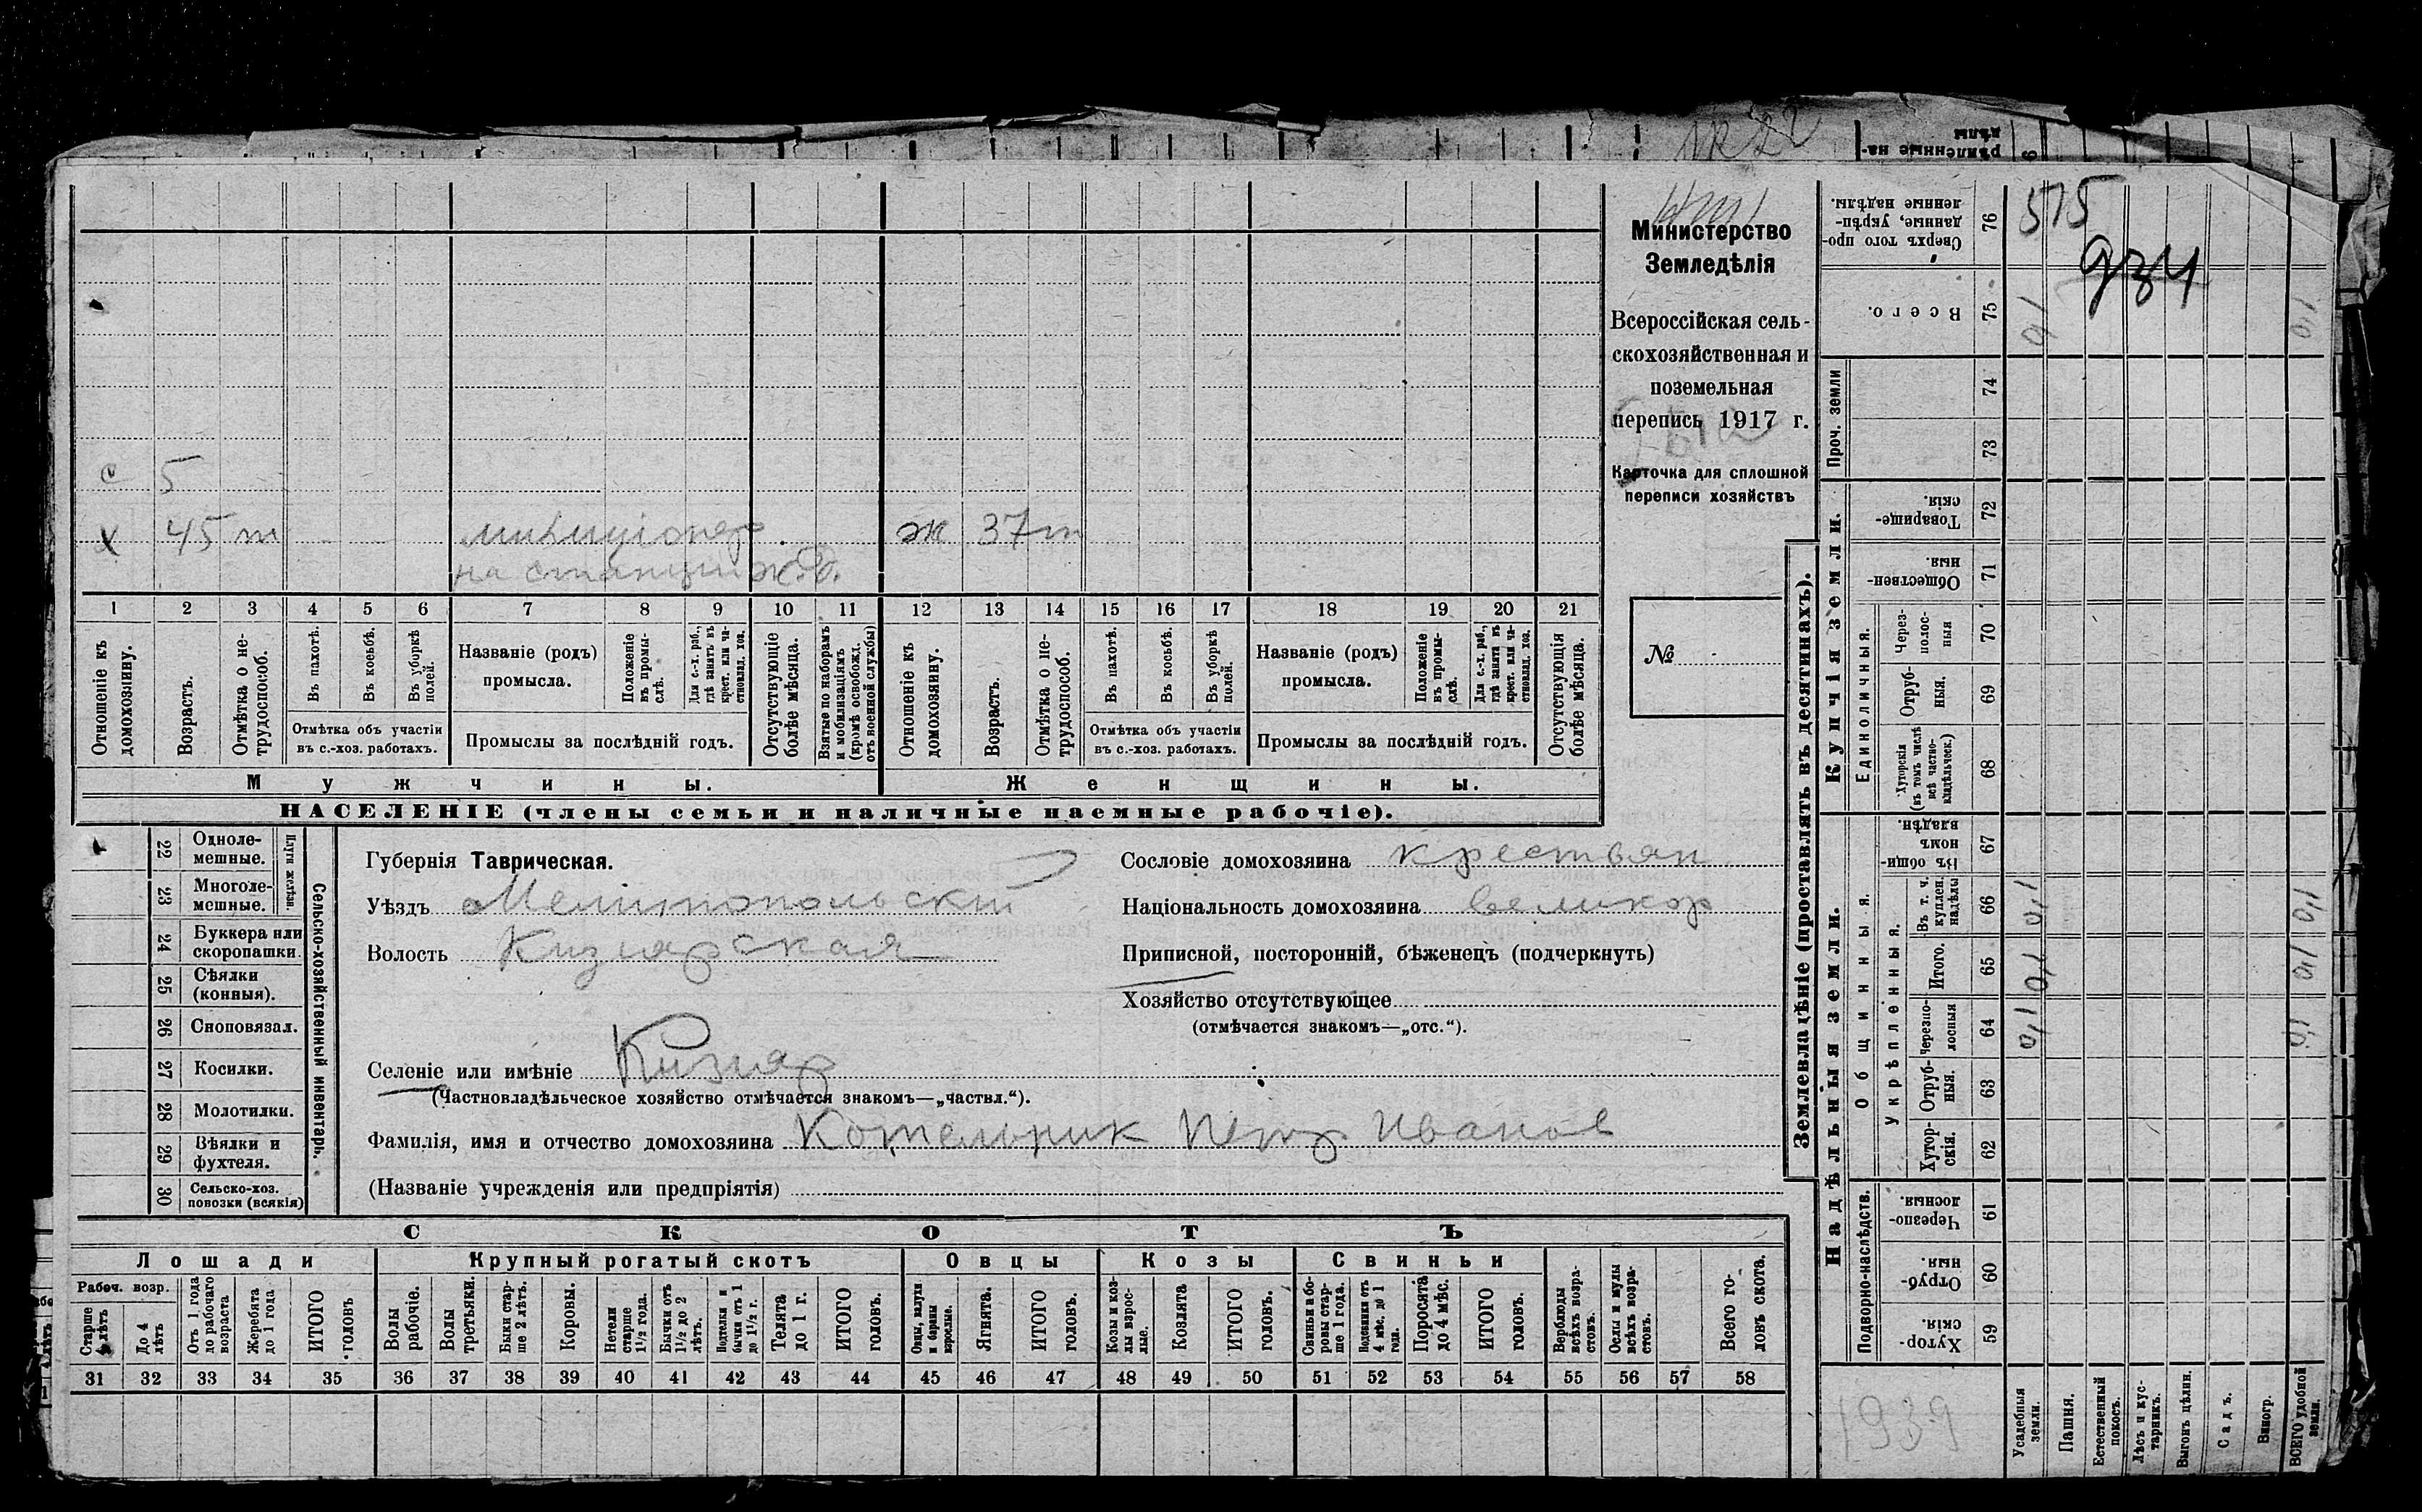 515
934
Министерство
Земледѣлія
Всероссійская сель-
скохозяйственная и
поземельная
перепись 1917 г.
Карточка для сплошной
переписи хозяйствъ
№
с 5
х 45 т милиціонер. ж 37 т
на станции ж.д.
1 2 3 4 5 6 7 8 9 10 11 12 13 14 15 16 17 18 19 20 21
Отношеніе къ домохозяину.
Возрастъ.
Отмѣтка о не-трудоспособ.
Въ пахотѣ.
Въ косьбѣ.
Въ уборкѣ полей.
Отмѣтка объ участіи
въ с.-хоз. работахъ.
Названіе (родъ)
промысла.
Положеніе въ промы-слѣ.
Для с.-х. раб., гдѣ занятъ въ крест. или ча-стновлад. хоз.
Промыслы за послѣдній годъ.
Отсутствующіе болѣе мѣсяца.
Взятые по наборамъ и мобилизаціямъ (кромѣ освобожд. отъ военной службы)
Отношеніе къ домохозяину.
Возрастъ.
Отмѣтка о не-трудоспособ.
Въ пахотѣ.
Въ косьбѣ.
Въ уборкѣ полей.
Отмѣтка объ участіи
въ с.-хоз. работахъ.
Названіе (родъ)
промысла.
Положеніе въ промы-слѣ.
Для с.-х. раб., гдѣ занята въ крест. или ча-стновлад. хоз.
Промыслы за послѣдній годъ.
Отсутствующія болѣе мѣсяца.
Мужчины.
Женщины.
НАСЕЛЕНІЕ (члены семьи и наличные наемные рабочіе).
22 Одноле-
мешные.
23 Многоле-
мешные.
Плуги желѣзн.
24 Буккера или
скоропашки.
25 Сѣялки
(конныя).
26 Сноповязал.
27 Косилки.
28 Молотилки.
29 Вѣялки и
фухтеля.
30 Сельско-хоз.
повозки (всякія)
Сельско-хозяйственный инвентарь.
Губернія Таврическая.
Уѣздъ Мелитопольскій
Волость Кизиярская
Сословіе домохозяина крестьян
Національность домохозяина великор
Приписной, посторонній, бѣженецъ (подчеркнуть)
Хозяйство отсутствующее
(отмѣчается знакомъ—„отс.“).
Селеніе или имѣніе Кизияр
(Частновладѣльческое хозяйство отмѣчается знакомъ—„частвл.“).
Фамилія, имя и отчество домохозяина Котельник Петр Иванов
(Названіе учрежденія или предпріятія)
СКОТЪ
Лошади
Крупный рогатый скотъ
Овцы
Козы
Свиньи
Рабоч. возр.
Старше 4 лѣтъ
До 4 лѣтъ
Отъ 1 года до рабочаго возраста
Жеребята до 1 года
ИТОГО головъ
Волы рабочіе.
Волы третьяки.
Быки стар-ше 2 лѣтъ.
Коровы.
Нетели старше 1½ года.
Бычки отъ 1½ до 2 лѣтъ.
Подтелки и бычки отъ 1 до 1½ г.
Телята до 1 г.
ИТОГО головъ.
Овцы, валухи и бараны взрослые.
Ягнята.
ИТОГО головъ.
Козы и коз-лы взрос-лые.
Козлята
ИТОГО головъ.
Свиньи и бо-ровы стар-ше 1 года.
Подсвинки отъ 4 мѣс. до 1 года.
Поросята до 4 мѣс.
ИТОГО головъ.
Верблюды всѣхъ возра-стовъ.
Ослы и мулы всѣхъ возра-стовъ.
Всего го-ловъ скота.
31 32 33 34 35 36 37 38 39 40 41 42 43 44 45 46 47 48 49 50 51 52 53 54 55 56 57 58
Землевладѣніе (проставлять въ десятинахъ).
Надѣльныя земли.
Купчія земли.
Проч. земли
Общинныя.
Укрѣпленныя.
Единоличныя.
Подворно-наслѣдств.
Сверхъ того про-данные, укрѣп-ленные надѣлы. 76
Всего. 75
74
73
Товарище-скія. 72
Обществен-ныя. 71
Через-полос-ныя 70
Отруб-ныя. 69
Хуторскія (въ томъ числѣ всѣ частно-владѣльческ.) 68
Въ общи-номъ владѣн. 67
Въ т. ч. куплен. надѣлы 66
Итого. 65
Черезпо-лосныя 64
Отруб-ныя. 63
Хутор-скія. 62
Черезпо-лосныя 61
Отруб-ныя. 60
Хутор-скія. 59
1939
Усадебныя земли.
Пашня.
Естественный покосъ.
Лѣсъ и кус-тарникъ.
Выгонъ цѣлин.
Садъ.
Виногр.
ВСЕГО удобной земли.